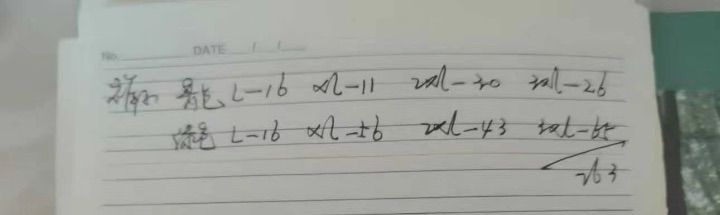 No. DATE / /
黑色 L-16 XL-11 2XL-30 3XL-26
L-16 XL-56 2XL-43 3XL-65
263